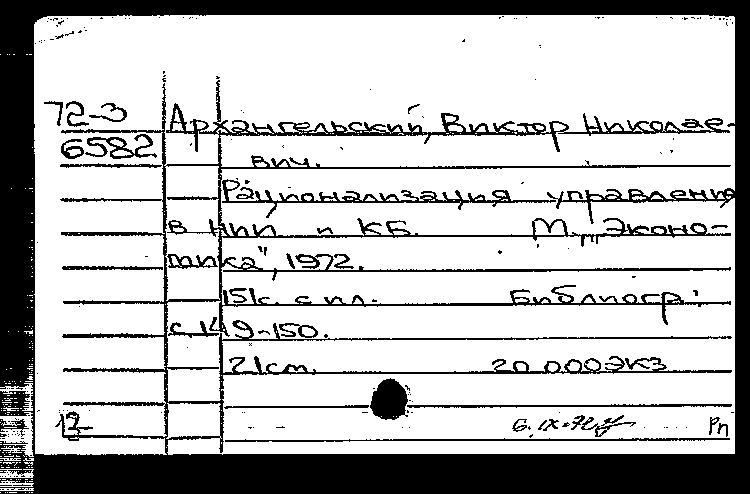 72-3 Архангельский, Виктор Николае-
6582 вич.
Рационализация управления
в НИИ и КБ. М., „Эконо-
мика", 1972.
151с. с ил. Библиогр:
с. 149-150.
21см. 20 000 экз
12- 6.IX-72 Рп